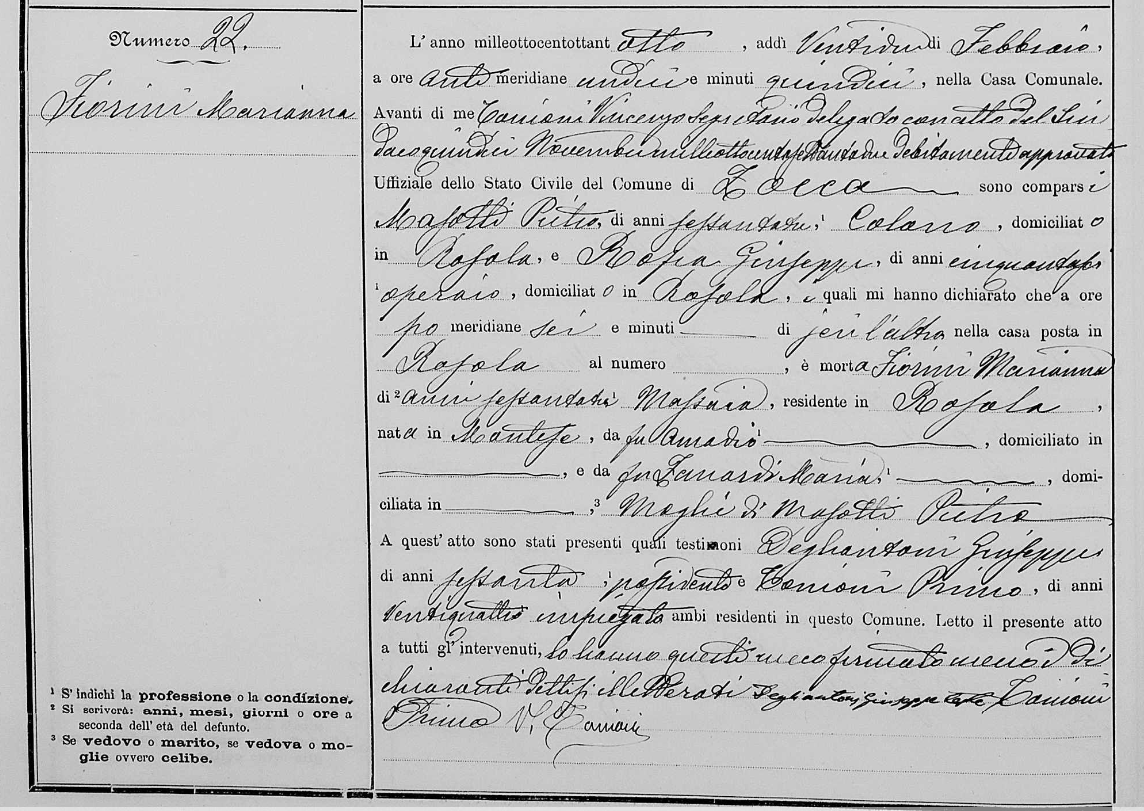 Numero 22.
Fiorini Marianna
L'anno milleottocentottant otto, addì Ventidue di Febbraio,
a ore anti meridiane undici e minuti quindici, nella Casa Comunale.
Avanti di me Tonioni Vincenzo Segretario delegato con atto del Sin
daco quindici Novembre milleottocentosettantadue debitamente approvato
Uffiziale dello Stato Civile del Comune di Zocca sono comparsi
Masotti Pietro, di anni sessantatre, Colono, domiciliato
in Rosola, e Rosia Giuseppe, di anni cinquantasei
operaio, domiciliato in Rosola, i quali mi hanno dichiarato che a ore
po meridiane sei e minuti di jeri l'altro nella casa posta in
Rosola al numero , è morta Fiorini Marianna
di ² anni sessantatre Massaia, residente in Rosola,
nata in Montese, da fu Amadio, domiciliato in
, e da fu Zanardi Maria, domi-
ciliata in ,³ Moglie di Masotti Pietro
A quest'atto sono stati presenti quali testimoni Degliantoni Giuseppe
di anni sessanta, possidente e Tonioni Primo, di anni
Ventiquattro impiegato ambi residenti in questo Comune. Letto il presente atto
a tutti gl'intervenuti, lo hanno questi meco firmato meno i di
chiaranti dettisi illetterati Degliantoni Giuseppe teste Tonioni
Primo V. Tonioni
¹ S'indichi la professione o la condizione.
² Si scriverà: anni, mesi, giorni o ore a
seconda dell'età del defunto.
³ Se vedovo o marito, se vedova o mo-
glie ovvero celibe.